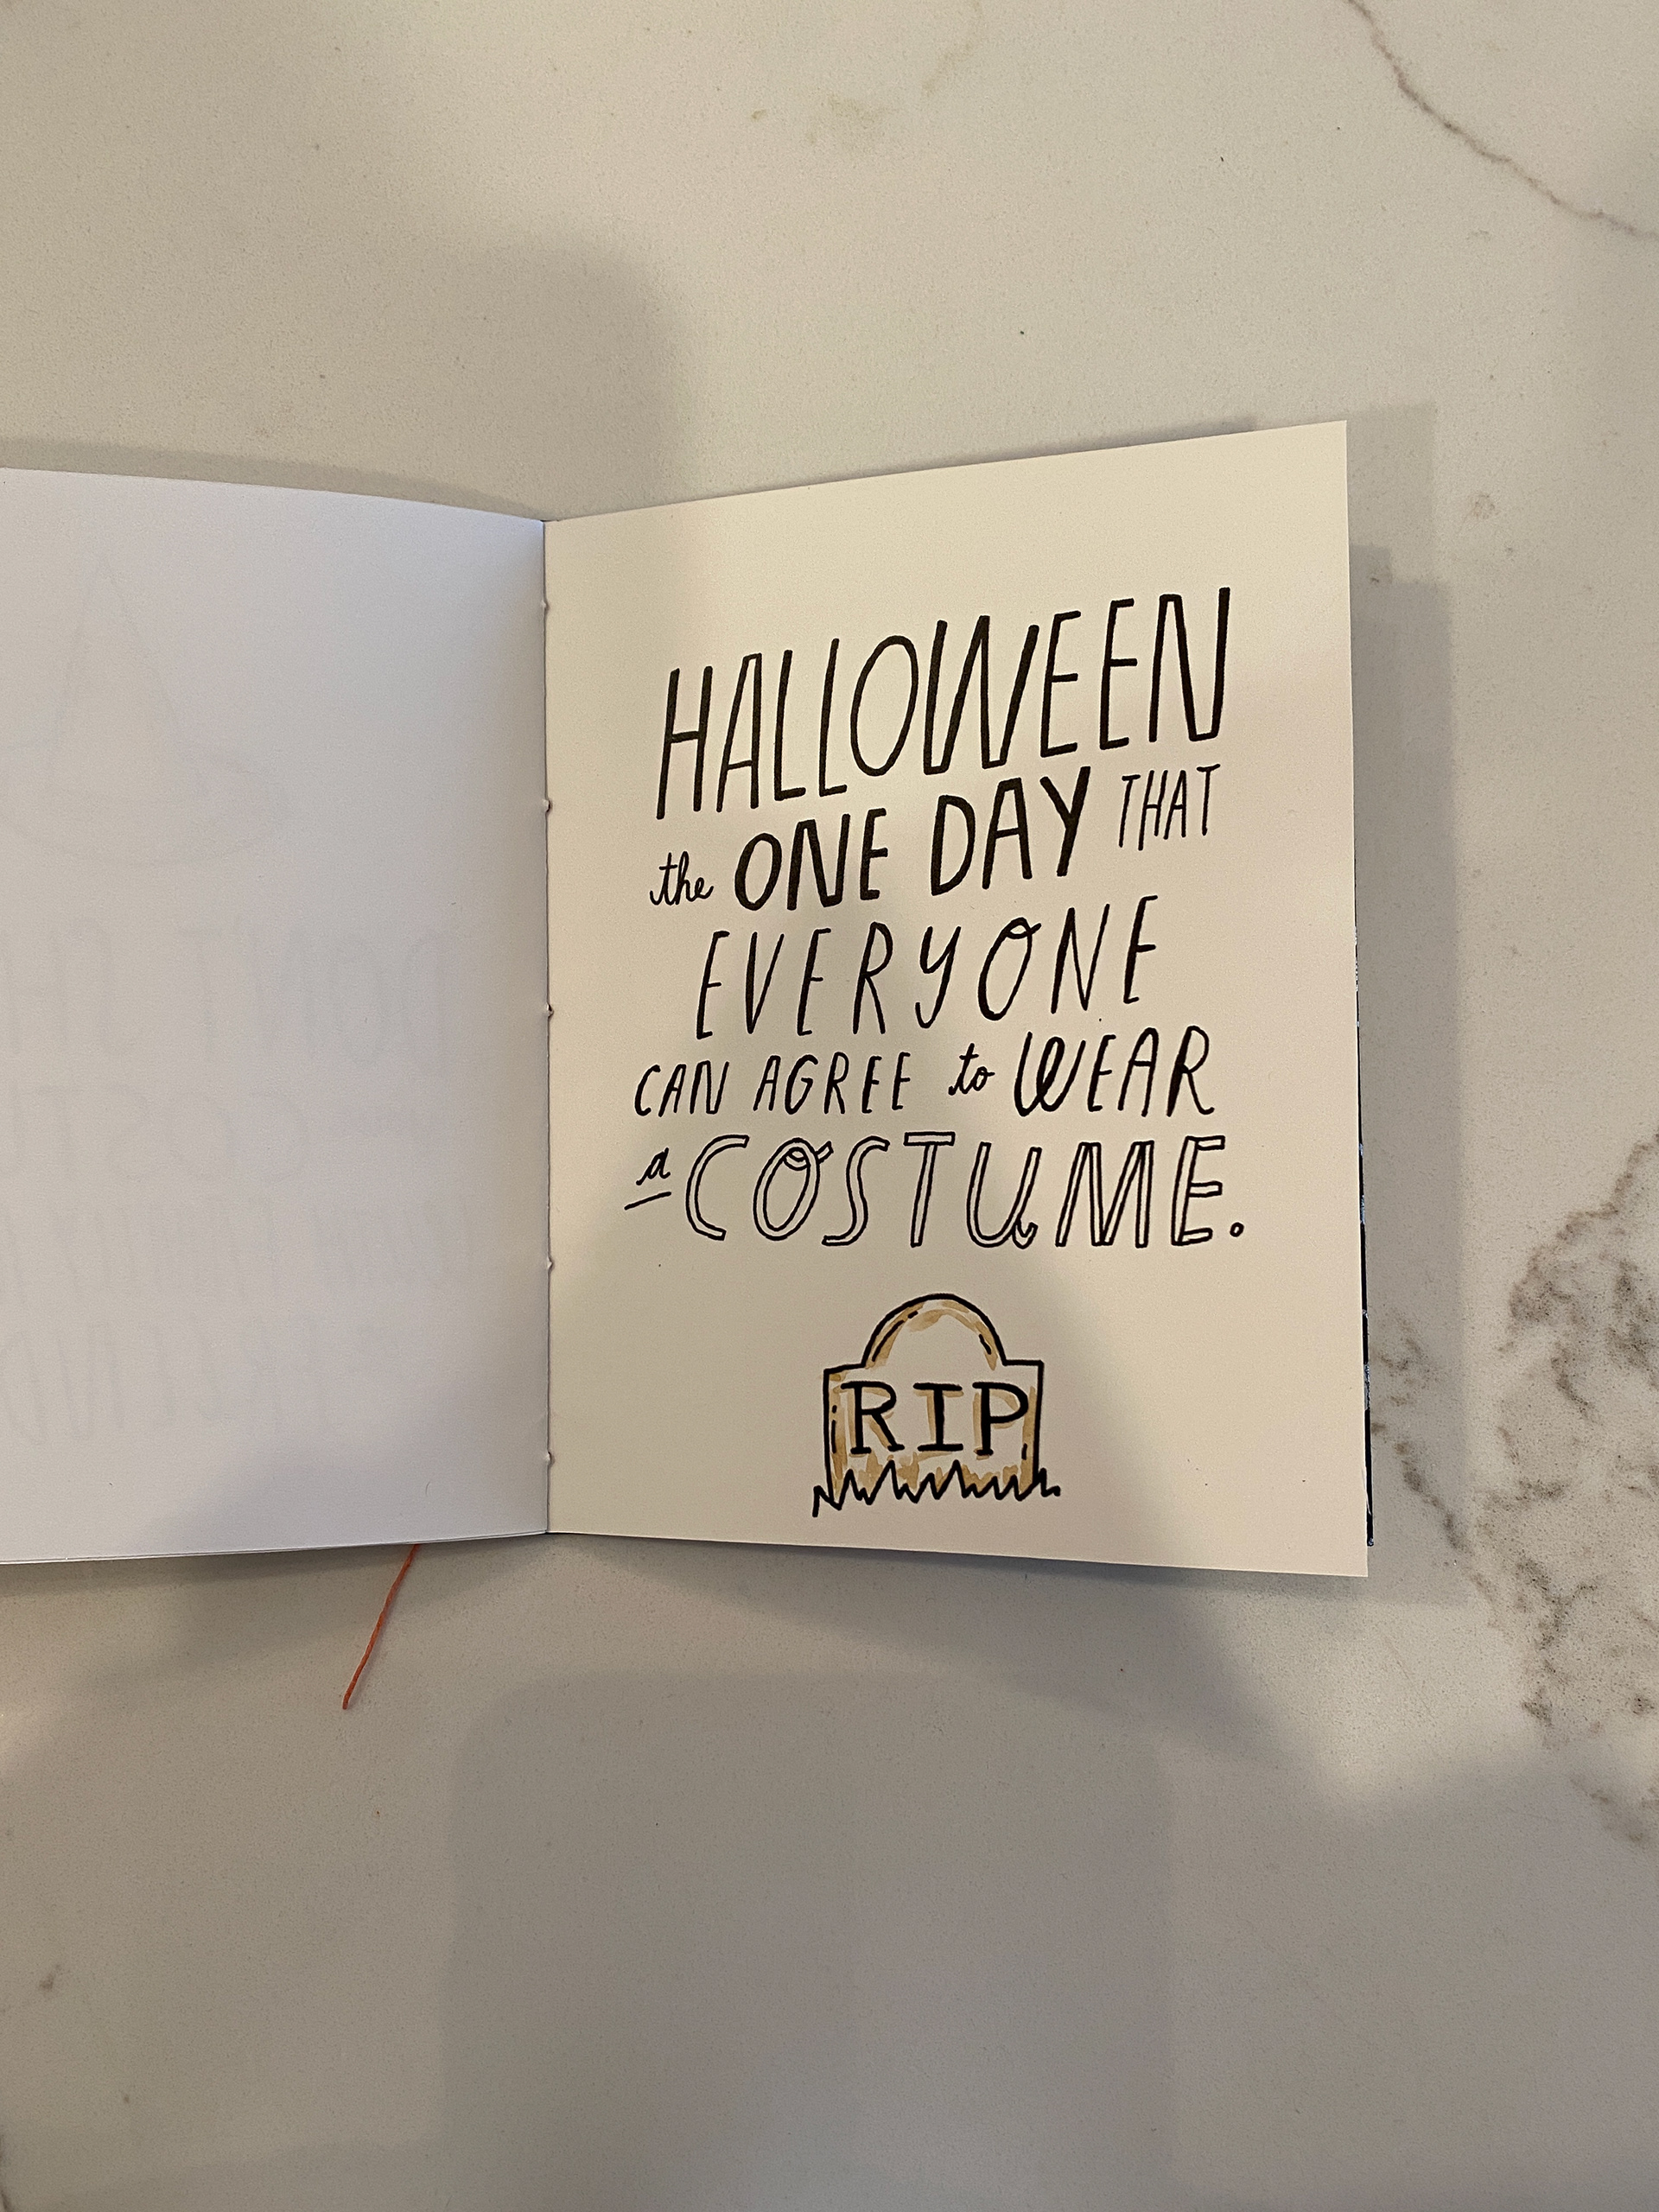 HALLOWEEN
the ONE DAY THAT
EVERYONE
CAN AGREE to WEAR
a COSTUME.
RIP